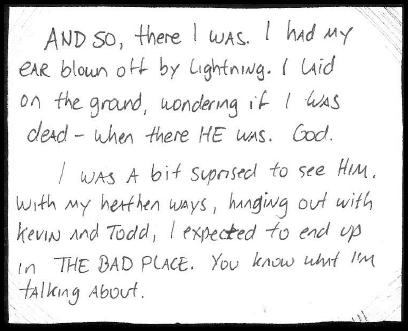 AND SO, there I WAS. I HAD MY
EAR blown off by Lightning. I LAID
on the ground, wondering if I WAS
dead - when there HE WAS. God.
I WAS A bit suprised to see HIM.
With my heathen ways, hanging out with
Kevin and Todd, I expected to end up
in THE BAD PLACE. You know what I'm
talking ABOUT.